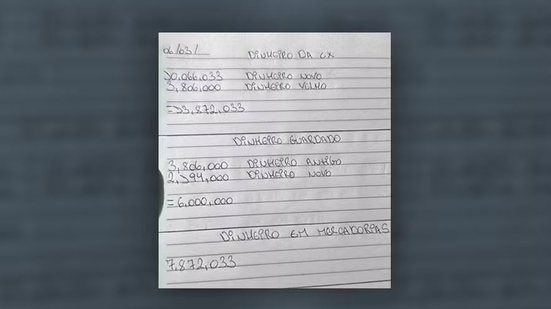 06/03/
DINHEIRO DA CX
>0,066,033 DINHEIRO NOVO
3,806,000 DINHEIRO VELHO
=>3,872,033
DINHEIRO GUARDADO
3,806,000 DINHEIRO ANTIGO
2,194,000 DINHEIRO NOVO
=6,000,000
DINHEIRO EM MERCADORIAS
7,872,033